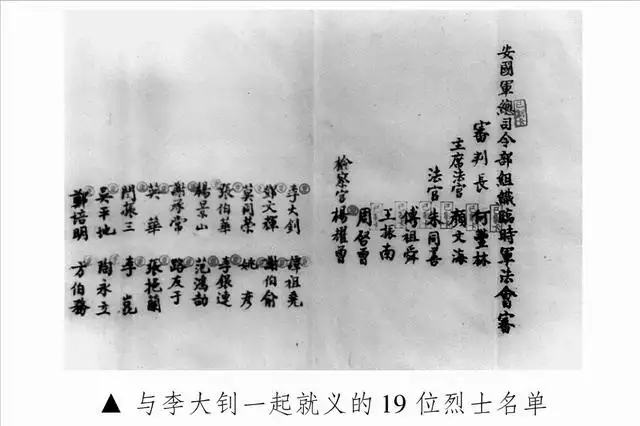 安國軍總司令部組織臨時軍法會審
審判長 何豐林
主席法官 顏文海
法官 朱同善
傅祖舜
王振南
周啓曾
檢察官楊耀曾
李大釗 譚祖堯
鄧文輝 謝伯俞
莫同榮 姚彥
張伯華 李銀連
楊景山 范鴻劼
謝承常 路友于
英華 張挹蘭
閻振三 李崑
吳平地 陶永立
鄭培明 方伯務
▲ 与李大钊一起就义的 19 位烈士名单